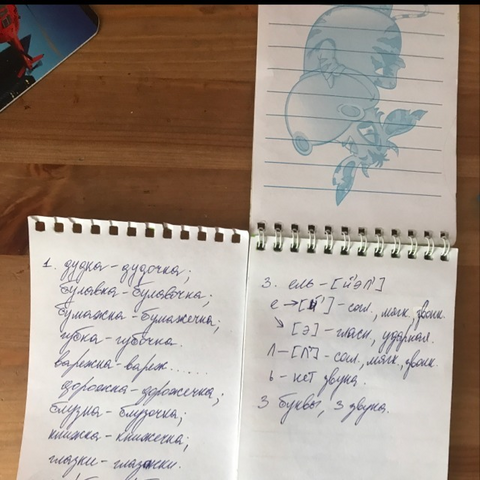 1. дудка - дудочка;
булавка - булавочка;
бумажка - бумажечка;
губка - губочка.
варежка - вареж......
дорожка - дорожечка;
блузка - блузочка;
книжка - книжечка;
глазки - глазочки.
3. ель - [й'эл']
е → [й'] - согл., мягк., звонк.
↘ [э] - гласн., ударная.
л - [л'] - сол., мягк., звонк.
ь - нет звука.
3 буквы, 3 звука.